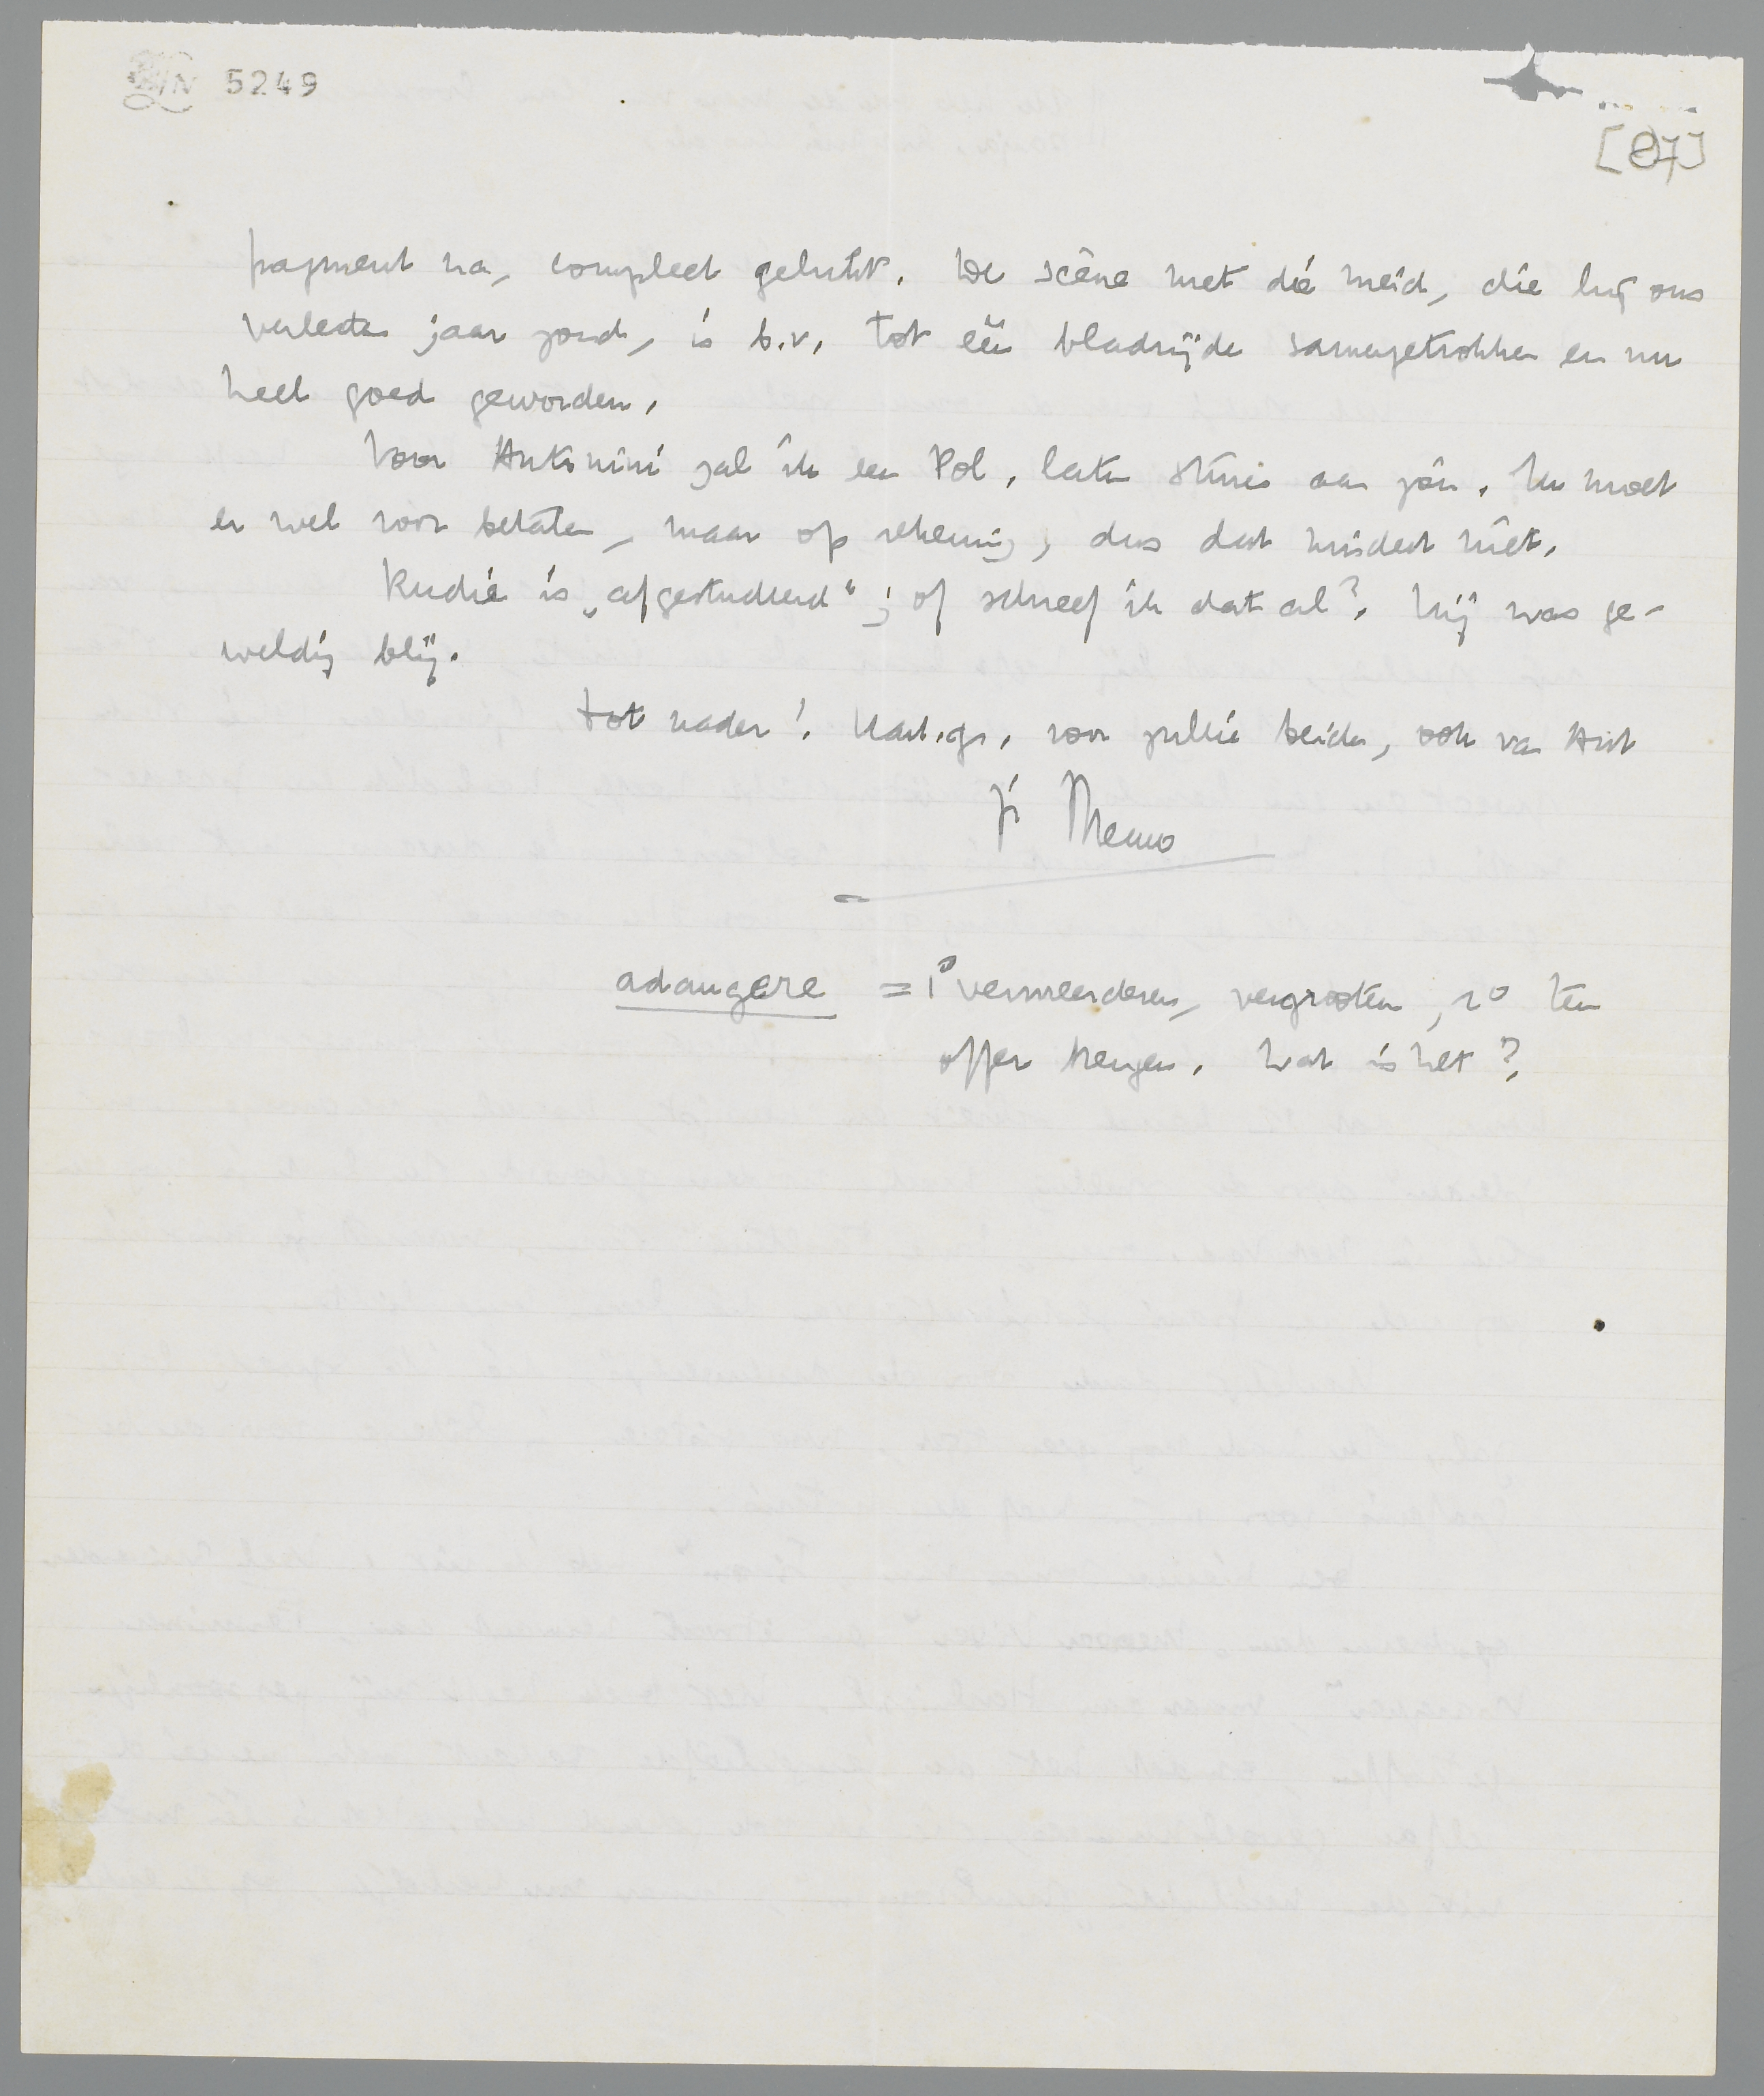 5249
[87]
fragment na, compleet gelukt. De scène met die meid, die hij ons
verleden jaar zond, is b.v. tot één bladzijde samengetrokken en nu
heel goed geworden.
Voor Antonini zal ik een Pol. laten sturen aan jou. Je moet
er wel voor betalen, maar op rekening, dus dat hindert niet.
Rudie is „afgestudeerd"; of schreef ik dat al? Hij was ge-
weldig blij.
Tot nader! Hart. gr. voor jullie beiden, ook van Ant
je Menno
adaugere = 1° vermeerderen, vergrooten, 2° ten
offer brengen. Wat is het?